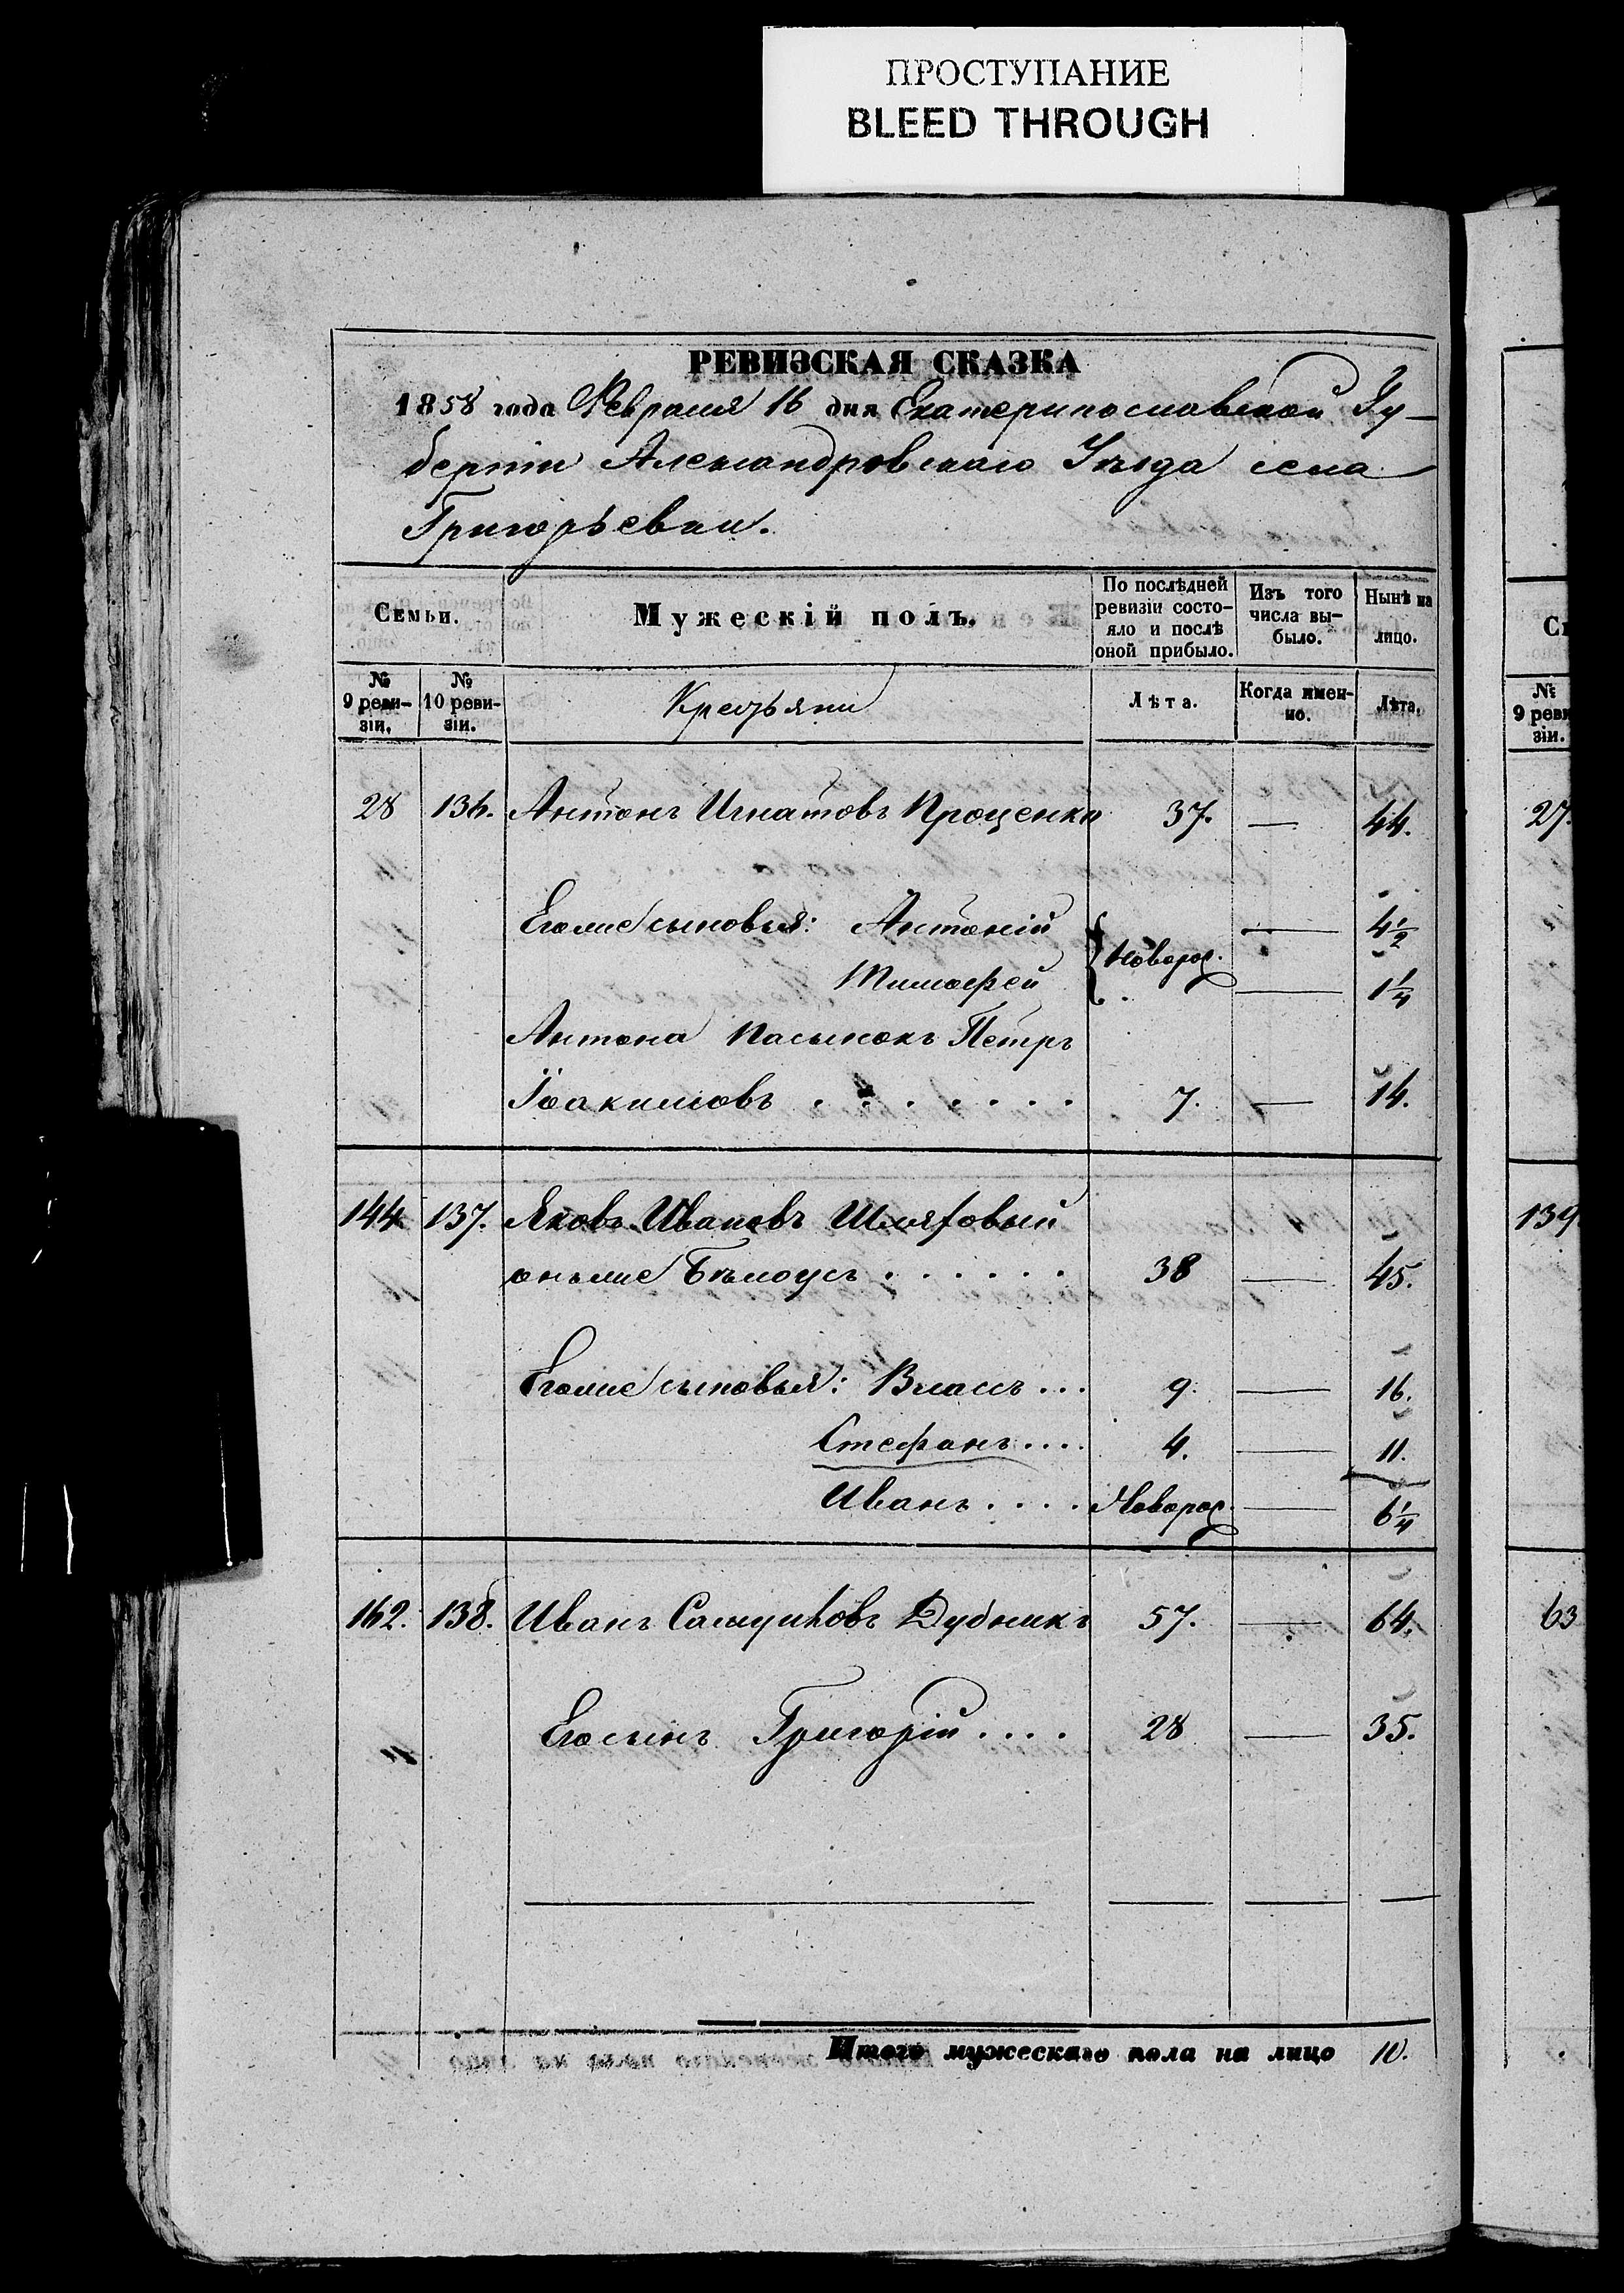 ПРОСТУПАНИЕ
BLEED THROUGH
РЕВИЗСКАЯ СКАЗКА
1858 года Февраля 16 дня Екатеринославской Гу-
берніи Александровскаго Уѣзда села
Григорьевки.
Семьи.
Мужескій полъ.
По послѣдней ревизіи состо-яло и послѣ оной прибыло.
Изъ того числа вы-было.
Нынѣ на лицо.
№ 9 реви-зіи.
№ 10 реви-зіи.
Крестьяни
Лѣта.
Когда имен-но.
Лѣта.
28 136. Антонъ Игнатовъ Проценко 37. — 44.
Егоже сыновья: Антоній — 4½
Новорож.
Тимофей — 1¼
Антона пасынокъ Петръ
Іоакимовъ . . . . . . . 7. — 14.
144 137. Яковъ Ивановъ Шляховый
онъже Бѣлоусъ . . . . . . 38 — 45.
Егоже сыновья: Власъ ... 9. — 16.
Стефанъ .... 4. — 11.
Иванъ .... Новорож. — 6¼
162. 138. Иванъ Дубникъ 57. — 64.
Его сынъ Григорій .... 28 — 35.
Итого мужескаго пола на лицо 10.
№ 9 реви зіи.
27.
139
63